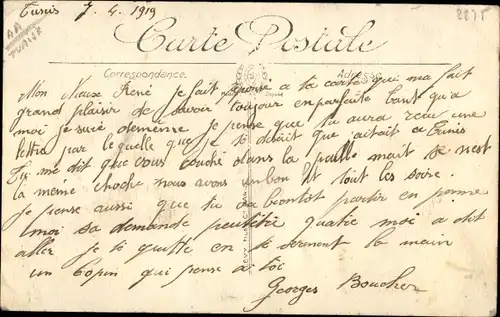 Tunis 7.4.1919
8875
AR
TUNISIE
Carte Postale
Correspondance
Adresse
Mon René je fait a ta carte qui ma fait
grand plaisir de savoir toujour en parfaite tant qu'a
moi je suie dememe je pense que tu aura recu une
lettre par lequelle que je te disait que jaitait a Tunis
Tu me dit que vous couché dans la paille mait se nest
la même choche nous avons un bon lit tout les soire.
Je pense aussi que tu va bientot partir en perme
moi sa demande peutêtre quatre moi a dit
aller je te quitte en te serrent la main
un Copin qui pense a toi
Georges Boucher